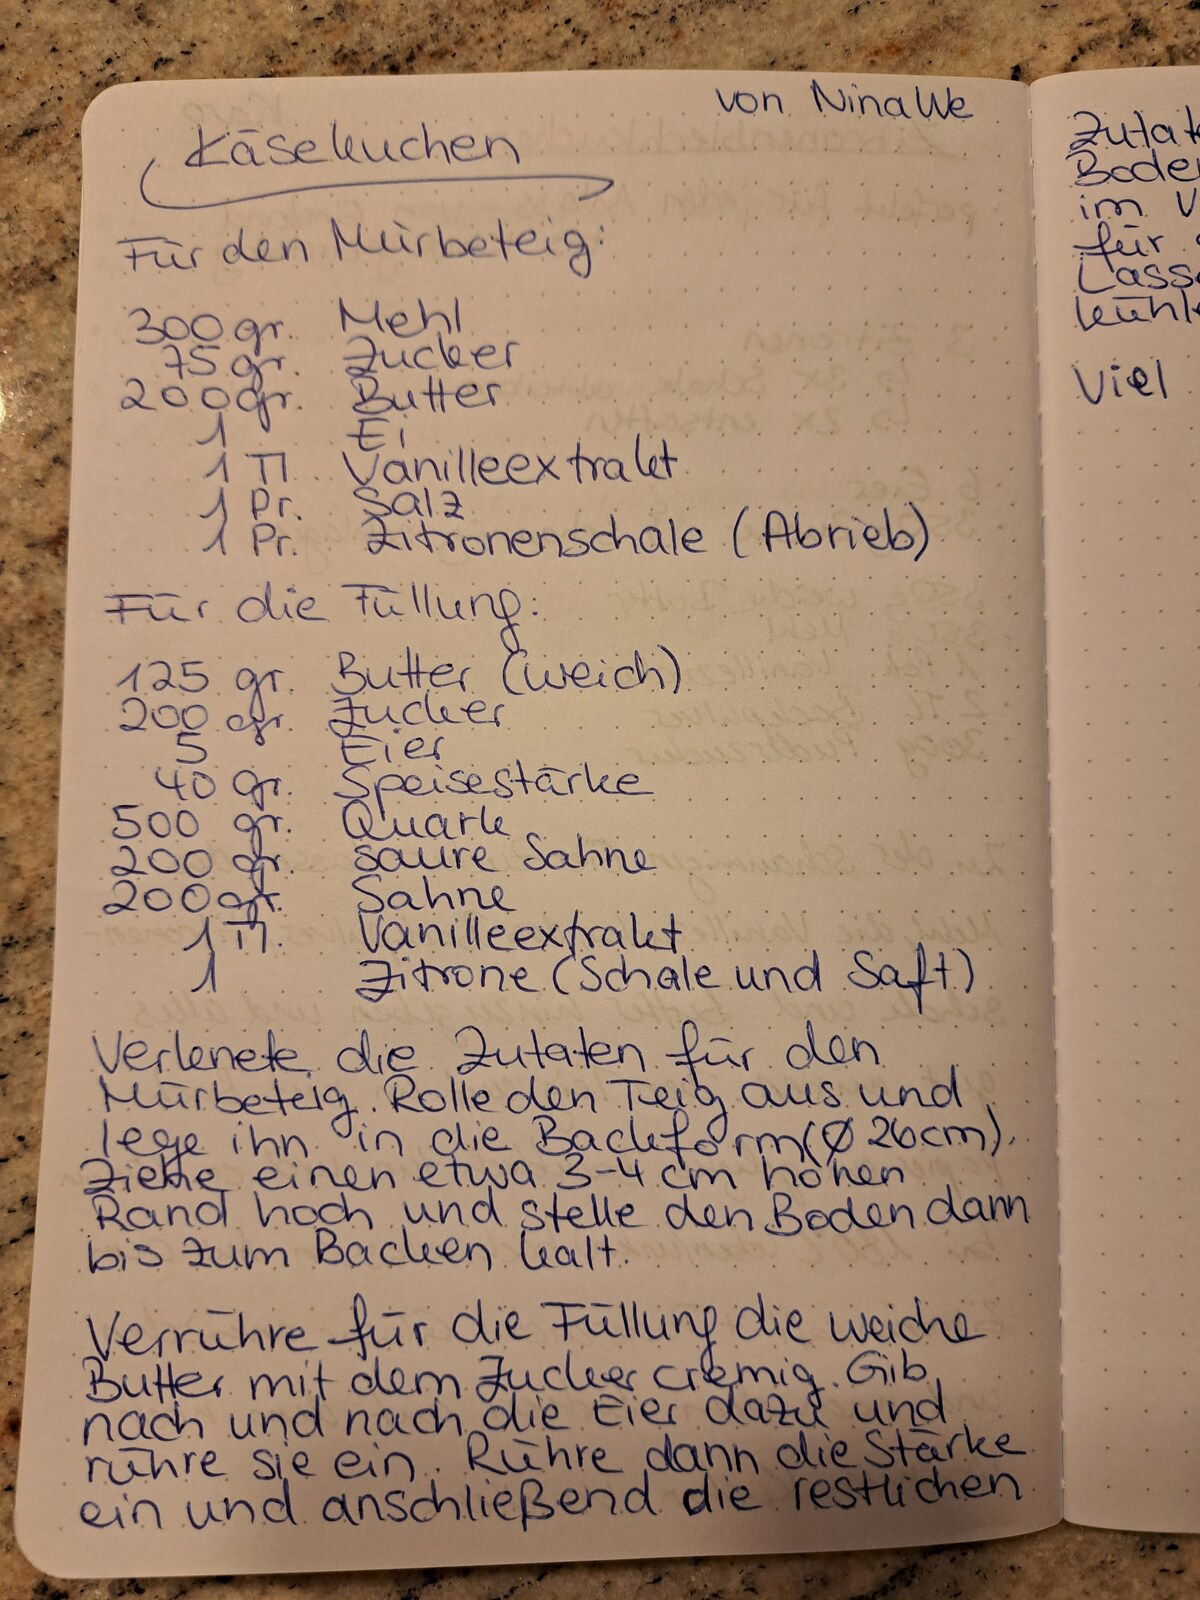 von NinaWe
Käsekuchen
Für den Mürbeteig:
300 gr. Mehl
75 gr. Zucker
200 gr. Butter
1 Ei
1 Tl. Vanilleextrakt
1 Pr. Salz
1 Pr. Zitronenschale (Abrieb)
Für die Füllung:
125 gr. Butter (weich)
200 gr. Zucker
5 Eier
40 gr. Speisestärke
500 gr. Quark
200 gr. saure Sahne
200 gr. Sahne
1 Tl. Vanilleextrakt
1 Zitrone (Schale und Saft)
Verknete die Zutaten für den
Mürbeteig. Rolle den Teig aus und
lege ihn in die Backform (Ø 26cm).
Ziehe einen etwa 3-4 cm hohen
Rand hoch und stelle den Boden dann
bis zum Backen kalt.
Verrühre für die Füllung die weiche
Butter mit dem Zucker cremig. Gib
nach und nach die Eier dazu und
rühre sie ein. Rühre dann die Stärke
ein und anschließend die restlichen
Zutat
Boden
im V
für
Lasse
kühle
Viel